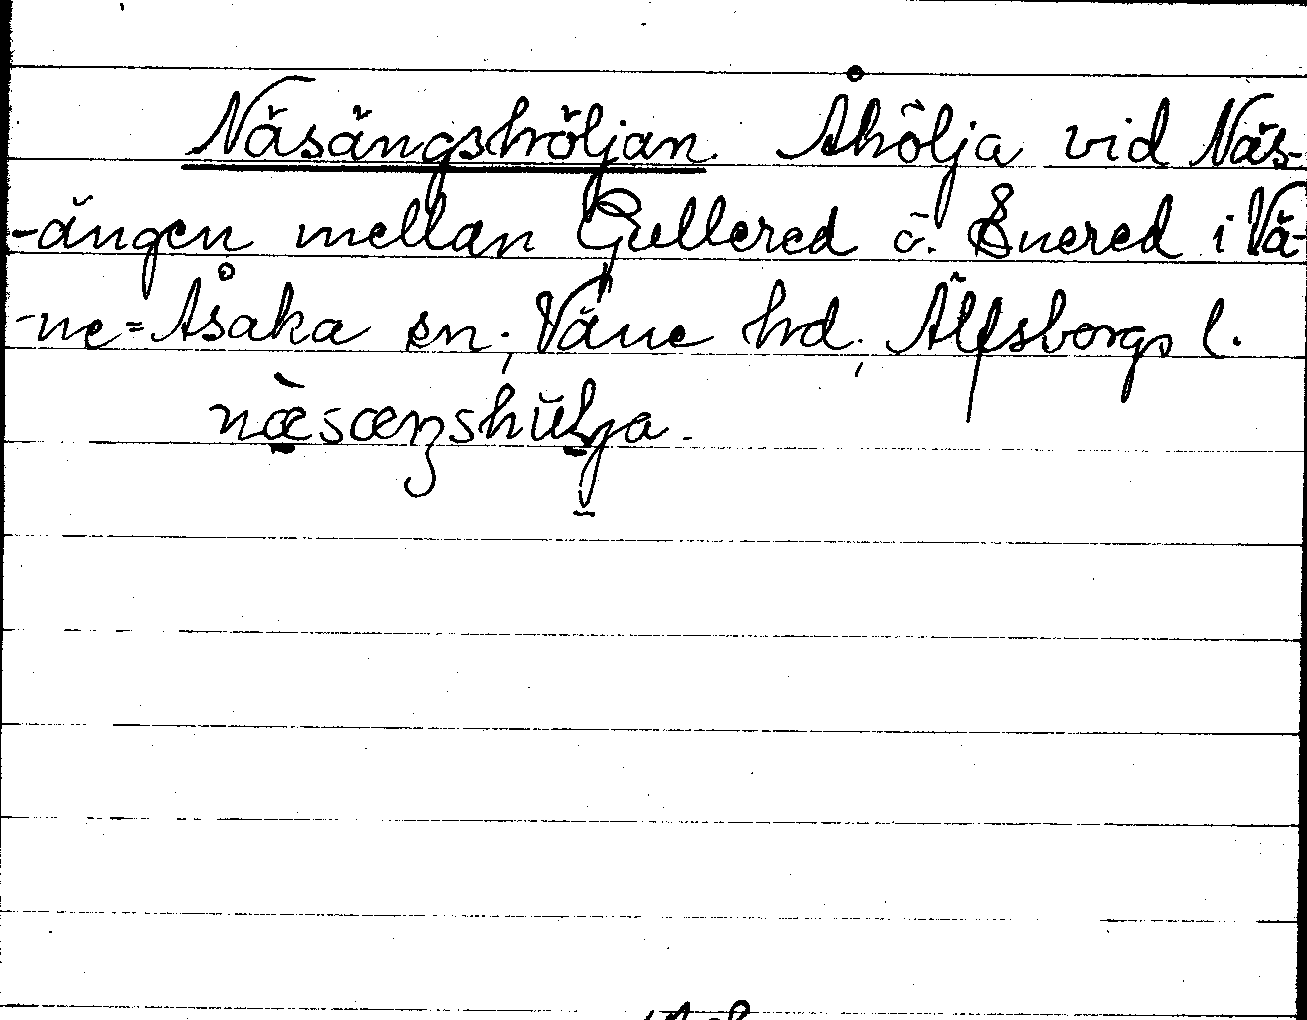 Näsängshöljan. Åhölja vid Näs-
-ängen mellan Gullered ö. Enered i Vä-
-ne=Åsaka sn; Väne hd; Älfsborgs l.
næ̀sæŋshŭlja.